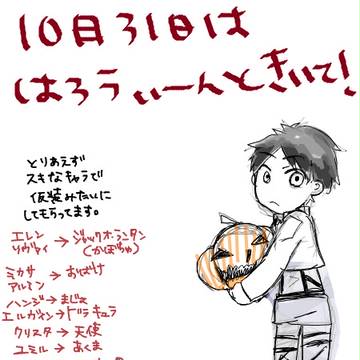 10月31日は
はろうぃーんときいて!
とりあえず
スキなキャラで
仮装みたいに
してもらってます。
エレン
リヴァイ → ジャックオランタン
(かぼちゃ)
ミカサ
アルミン → おばけ
ハンジ → まじょ
エルヴィン → ドラキュラ
クリスタ → 天使
ユミル → あくま